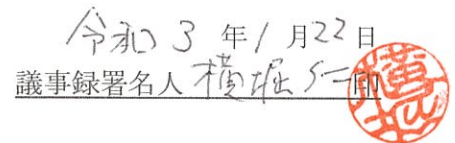 令和3年1月22日
議事録署名人 横堀 仁 印